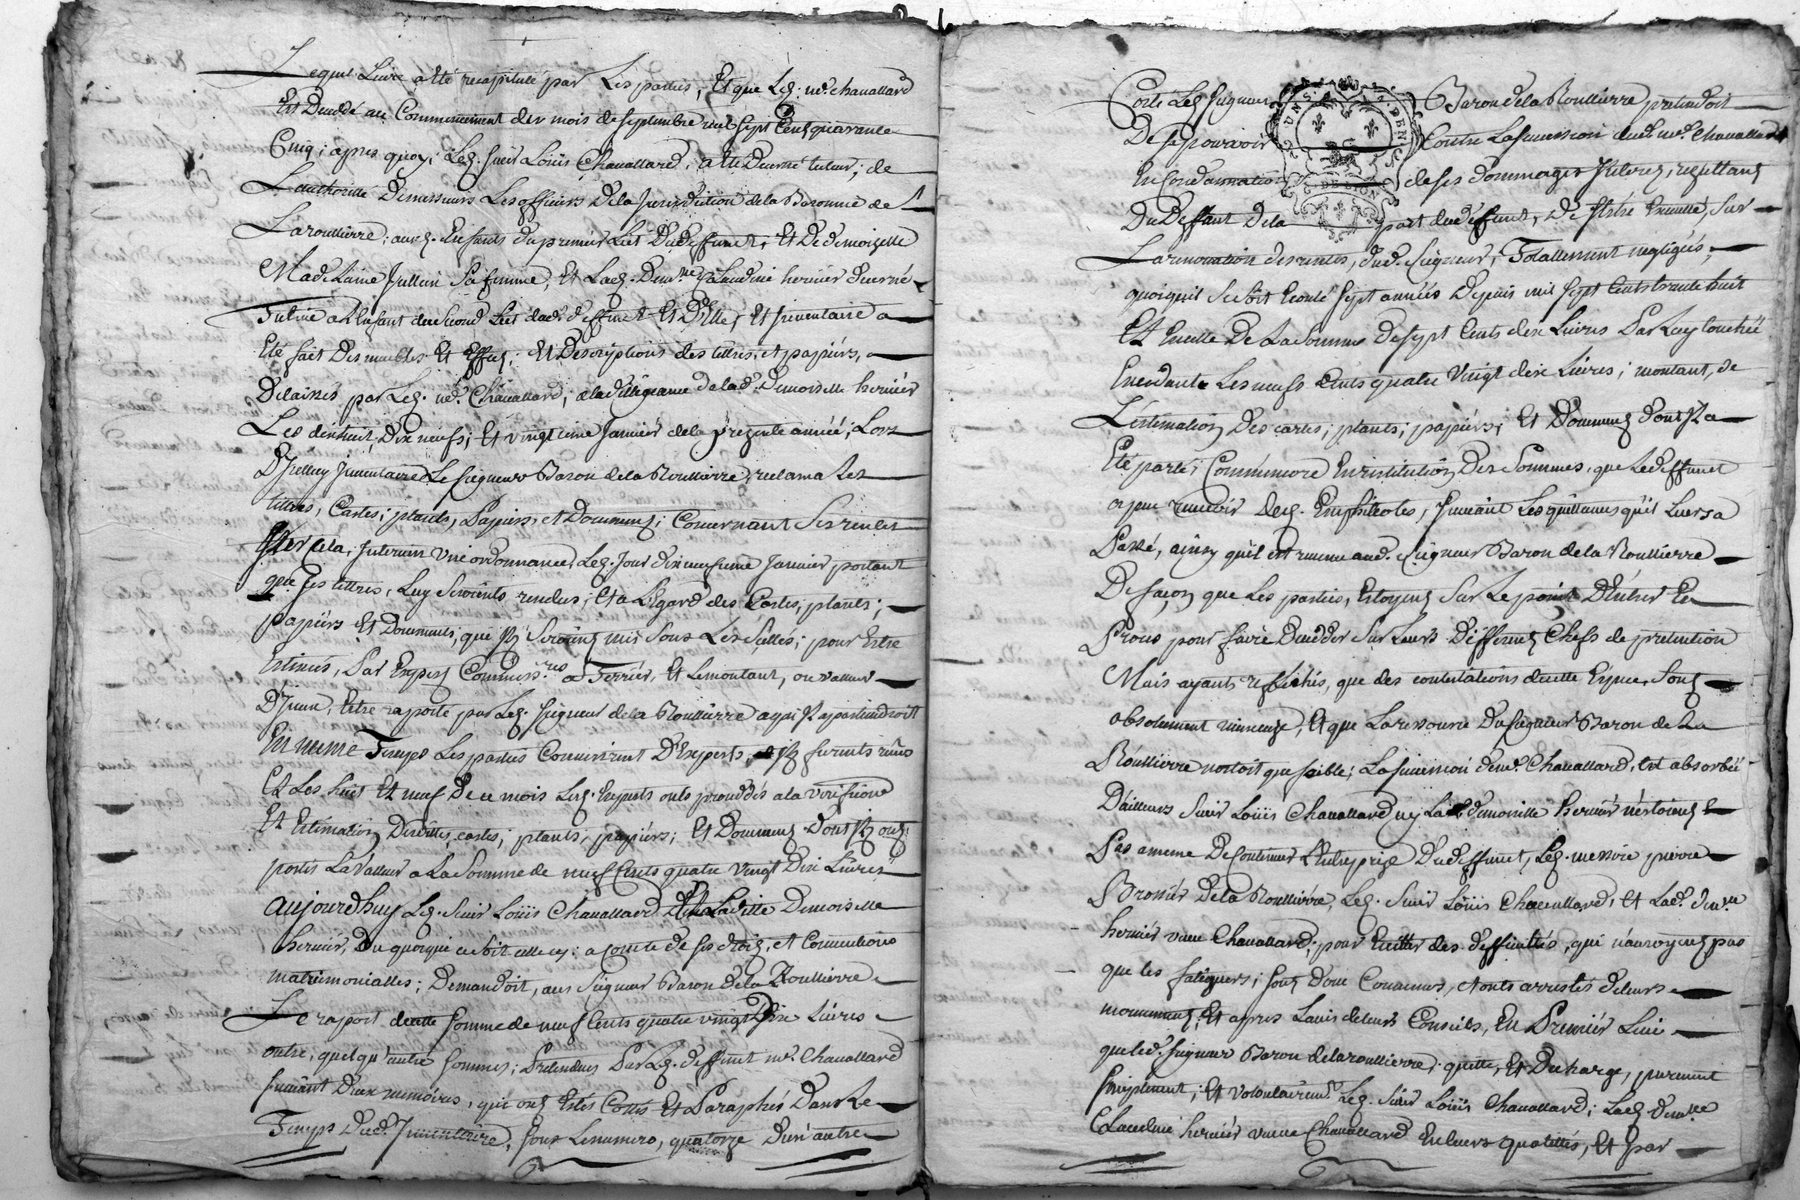 Lequel Livre a été recapitulé par Les parties, Et que Led. me. chauallard
Est Decedé au Commencement du mois de septembre mil sept Cents quarante
Cinq; apres quoy, Led. sieur Loüis Chauallard, a été Decerné tuteur, de
L'authorité De messieurs Les officiers De la Jurisdiction de la Baronnie de
Laroullierre; auxd. Enfants du premier Lit Dud. deffunct, Et De demoizelle
Madelaine Jullien Sa femme, Et Lad. Demlle. Claudine hernier decerné
Tutrice a L'enfant du second Lit dud. deffunct Et D'Elle, Et Inventaire a
Eté fait Des meubles Et Effets; Et Descriptions des tittres, et papiers,
Delaissés par Led. me. Chauallard, a la dilligeance de lad. Demoiselle hernier
Les dixhuit, Dix neuf, Et vingt une Janvier de la presente année; Lors
D'Jcelluy Jnventaire Le seigneur Baron de la Roullierre, reclama Les
tittres, Cartes; plants, Papiers, et Documents; Concernant Ses rentes
Sur cela, Intervint une ordonnance, Led. jour dixneufieme Janvier portant
que Les tittres, Luy Seroients rendus; Et a L'Egard des Cartes, plants;
papiers Et Documents, que Jls Seroient mis Sous Les Scellés; pour Estre
Estimés, Par Experts Commissres. a Terrier, Et Le montant, ou valleur
D'Jceux, Estre raporté par Led. seigneur de la Roullierre a qui Jl appartiendroit
En meme Temps Les parties Convinrent D'Experts,
Et Les huit Et neuf De ce mois Lesd. Experts onts proceddés a la veriffication
Et Estimation Desdittes cartes; plants, papiers; Et Documents dont Jls ont
portés La Valleur a La Somme de neuf Cents quatre vingt Dix Livres
Aujourd'huy Led. Sieur Loüis Chauallard Et Laditte Demoiselle
hernier, Du quoique ce soit celle cy a compte de ses droits, et Conventions
matrimonialles; Demandoit, au Seigneur Baron de la Roullierre
Le raport de cette somme de neuf Cents quatre vingt Dix Livres
outre, quelqu'autre sommes; Pretendues Par Led. deffunct me. Chauallard
suivant Deux memoires, qui onts Estés Cottés Et Paraphés Dans Le
Temps Dud. Jnventaire, sous Le numero, quatorze D'un autre
Coté Led. seigneur Baron de la Roullierre pretendoit
De se pourvoir Contre La succession dud. me. Chauallard
En Condamnation de ses dommages Jnterets, resultant
Du Deffaut De la part dud. deffunct, De s'etre
La renovation des rentes, dud. Seigneur, Totallement negligés;
quoiqu'il se soit Ecoulé sept années Depuis mil sept Cents trente huit
Et Encette De La Somme De sept Cents dix Livres Par Luy touchée
Excedant Les neufs Cents quatre vingt dix Livres; montant, de
L'estimation Des cartes; plants; papiers; Et Documents dont Jl a
Eté parlé; Comme encore En restitution Des Sommes, que Le deffunct
a peu recevoir des Emphiteotes, suivant Les quittances qu'il Leurs a
Passé, ainsy qu'il est revenu aud. Seigneur Baron de la Roullierre
De façon que Les parties, Estoyent Sur Le point D'Entrer En
Procés pour faire Decider Sur Leurs Differents Chefs de pretention
Mais ayants reflechis, que des contestations de cette Espece, Sont
absolument ruineuze, Et que La ressource Du Seigneur Baron de La
Roullierre n'estoit que foible; La succession de me. Chauallard, Est absorbée
D'ailleurs Sieur Loüis Chauallard ny La De. demoiselle hernier n'estoient
Pas a meme De Continuer L'Entreprize Dud. deffunct, Led. messire pierre
Bronnier De la Roullierre, Led. Sieur Loüis Chauallard, Et Lad. Demlle.
hernier veuve Chauallard; pour Eviter des difficultés, qui n'auroyent pas
que les fatiguers; sont donc Convenus, et onts arrestés de leurs
mouvement; Et apres L'avis de leurs Conseils, En Premier Lieu
que led. Seigneur Baron de la roullierre, quitte, Et Decharge, purement
simplement; Et volontairemt. Led. Sieur Loüis Chauallard; Lad. Demlle.
Claudine hernier veuve Chauallard En leurs qualittés, Et par